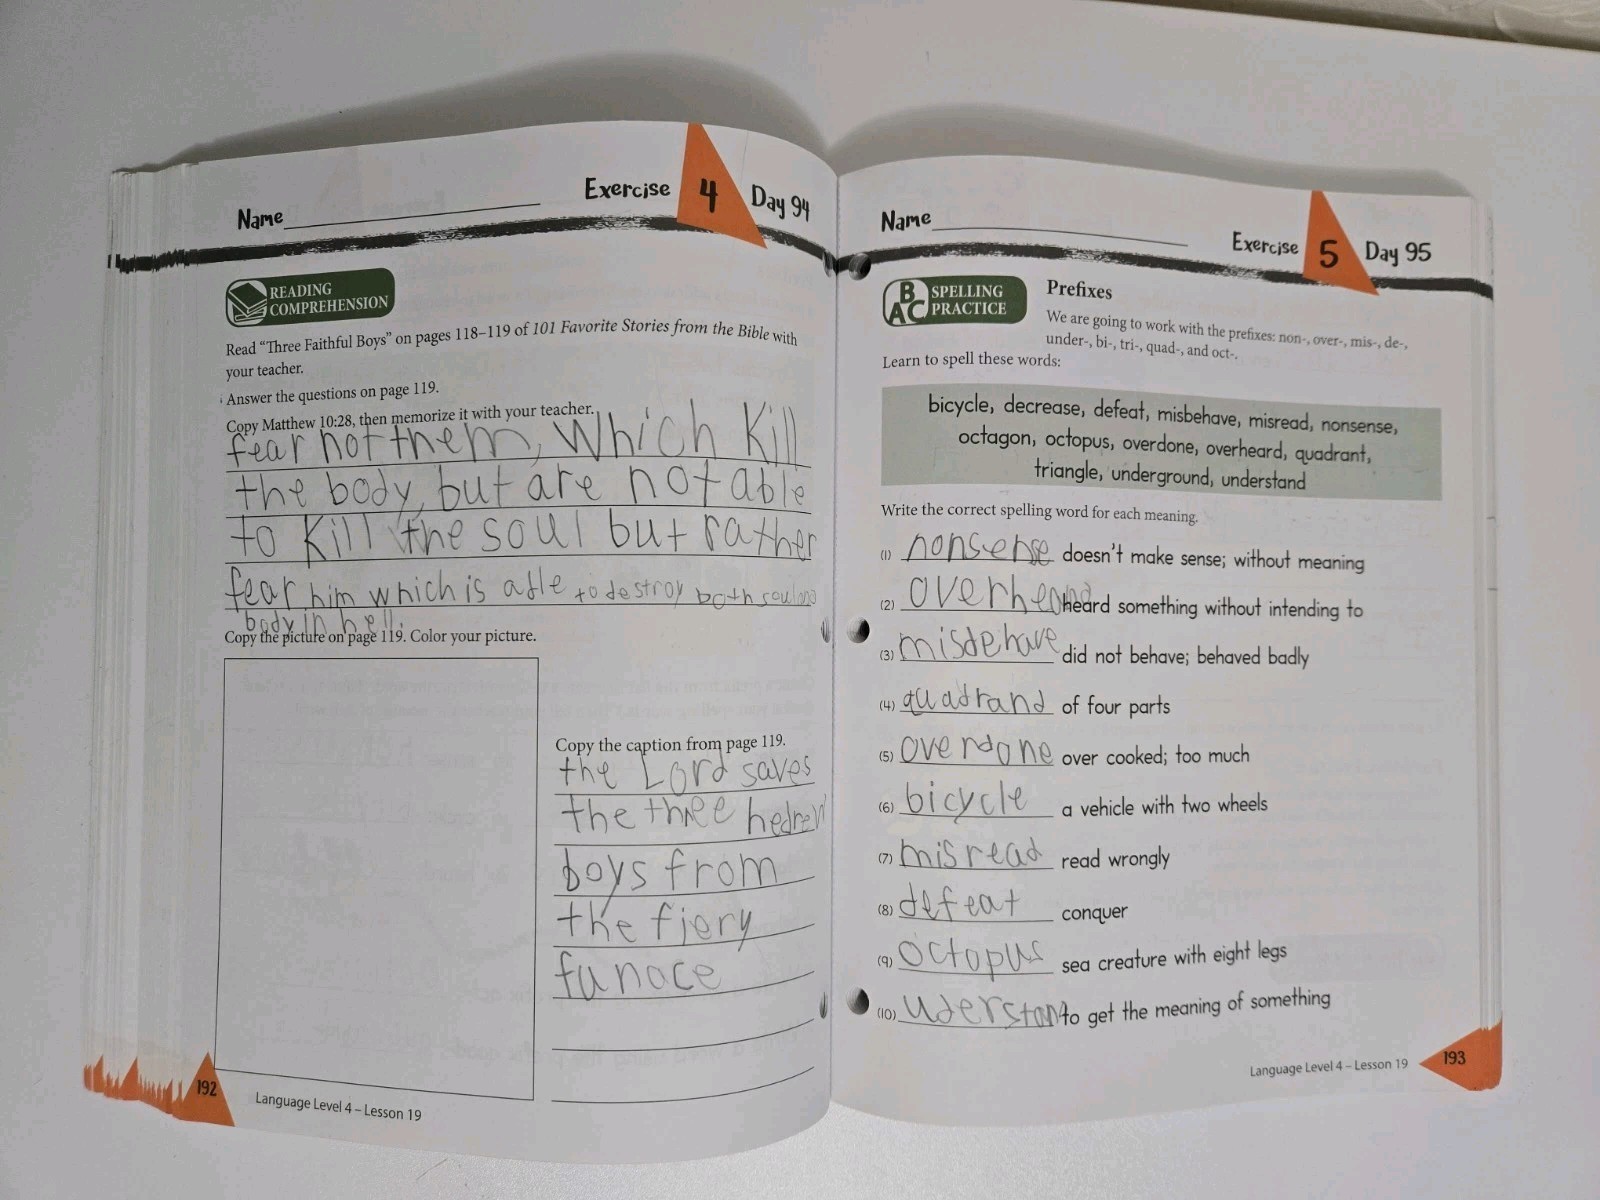 Name
Exercise 4 Day 94
READING
COMPREHENSION
Read “Three Faithful Boys” on pages 118–119 of 101 Favorite Stories from the Bible with
your teacher.
Answer the questions on page 119.
Copy Matthew 10:28, then memorize it with your teacher.
fear not them, Which Kill
the body, but are not able
to Kill the soul but rather
fear him which is able to destroy both soul and
body in hell.
Copy the picture on page 119. Color your picture.
Copy the caption from page 119.
the Lord saves
the three hedrew
boys from
the fiery
funace
192
Language Level 4 – Lesson 19
Name
Exercise 5 Day 95
ABC SPELLING
PRACTICE
Prefixes
We are going to work with the prefixes: non-, over-, mis-, de-,
under-, bi-, tri-, quad-, and oct-.
Learn to spell these words:
bicycle, decrease, defeat, misbehave, misread, nonsense,
octagon, octopus, overdone, overheard, quadrant,
triangle, underground, understand
Write the correct spelling word for each meaning.
(1) nonsense doesn't make sense; without meaning
(2) heard something without intending to
(3) misdehave did not behave; behaved badly
(4) quadrand of four parts
(5) overdone over cooked; too much
(6) bicycle a vehicle with two wheels
(7) misread read wrongly
(8) defeat conquer
(9) octopus sea creature with eight legs
(10) to get the meaning of something
Language Level 4 – Lesson 19
193